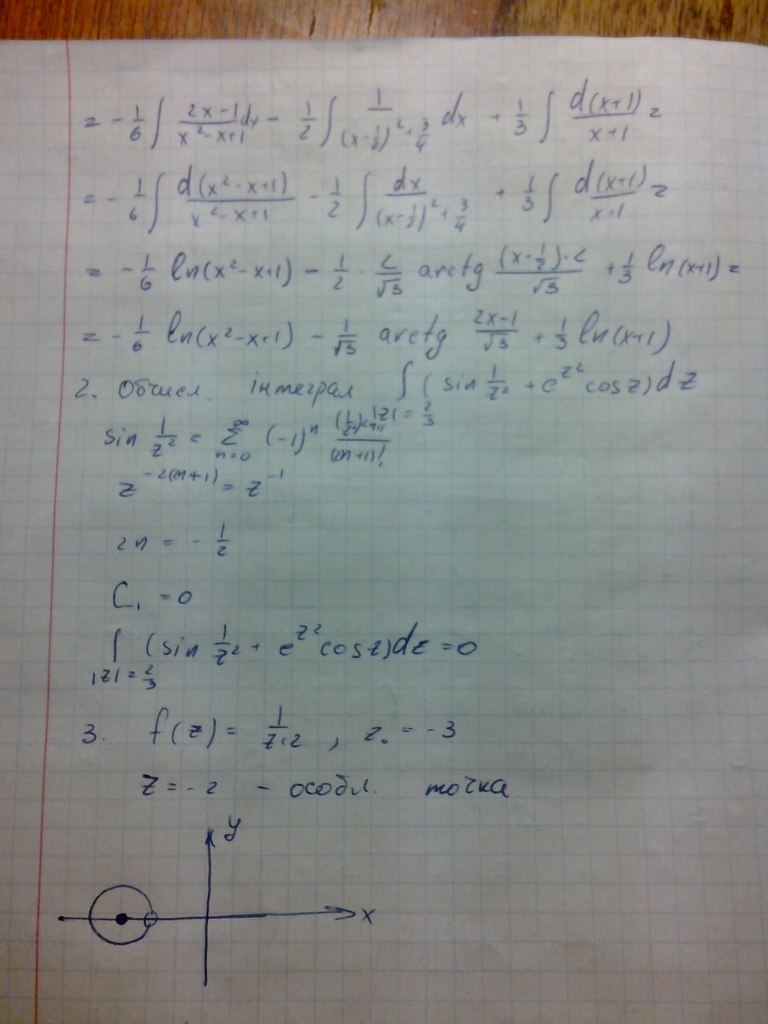 = -1/6 ∫ (2x-1)/(x²-x+1) dx - 1/2 ∫ 1/((x-1/2)²+3/4) dx + 1/3 ∫ d(x+1)/(x+1) =
= -1/6 ∫ d(x²-x+1)/(x²-x+1) - 1/2 ∫ dx/((x-1/2)²+3/4) + 1/3 ∫ d(x+1)/(x+1) =
= -1/6 ln(x²-x+1) - 1/2 · 2/√3 arctg ((x-1/2)·2)/√3 + 1/3 ln(x+1) =
= -1/6 ln(x²-x+1) - 1/√3 arctg (2x-1)/√3 + 1/3 ln(x+1)
2. Обчисл. інтеграл ∫ (sin 1/z² + e^{z²} cos z) dz
|z| = 2/3
sin 1/z² = Σ_{n=0}^{∞} (-1)ⁿ (1/z²)^{2n+1}/(2n+1)!
z^{-2(2n+1)} = z^{-1}
2n = -1/2
C₋₁ = 0
∫_{|z|=2/3} (sin 1/z² + e^{z²} cos z) dz = 0
3. f(z) = 1/(z+2) , z₀ = -3
z = -2 - особл. точка
y
x